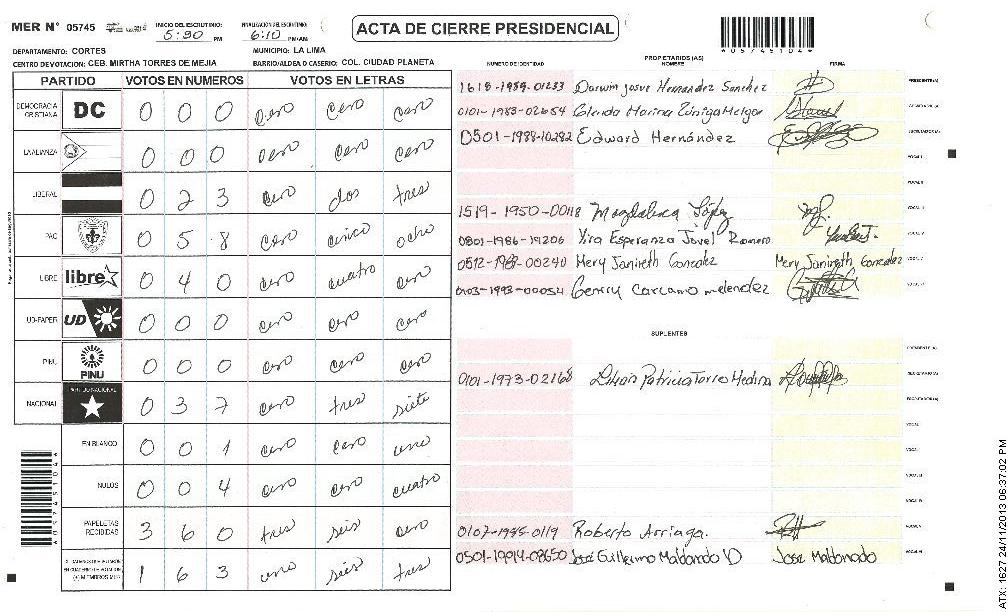 MER N° 05745 INICIO DEL ESCRUTINIO: 5:30 PM FINALIZACION DEL ESCRUTINIO: 6:10 PM/AM
ACTA DE CIERRE PRESIDENCIAL
DEPARTAMENTO: CORTES MUNICIPIO: LA LIMA
CENTRO DE VOTACION: CEB. MIRTHA TORRES DE MEJIA BARRIO/ALDEA O CASERIO: COL. CIUDAD PLANETA
PARTIDO VOTOS EN NUMEROS VOTOS EN LETRAS
DEMOCRACIA CRISTIANA DC 0 0 0 cero cero cero
LA ALIANZA 0 0 0 cero cero cero
LIBERAL 0 2 3 cero dos tres
PAC 0 5 8 cero cinco ocho
LIBRE libre 0 4 0 cero cuatro cero
UD-FAPER UD 0 0 0 cero cero cero
PINU PINU 0 0 0 cero cero cero
NACIONAL PARTIDO NACIONAL 0 3 7 cero tres siete
EN BLANCO 0 0 1 cero cero uno
NULOS 0 0 4 cero cero cuatro
PAPELETAS RECIBIDAS 3 6 0 tres seis cero
1 6 3 uno seis tres
PROPIETARIOS (AS)
NUMERO DE IDENTIDAD NOMBRE FIRMA
Darwin Josue Hernandez Sanchez PRESIDENTE(A)
0101-1983-02654 Glenda Marina Zúniga Melgar
0501-1988-10282 Edward Hernández
1519-1950-00118 Magdalena López
0801-1986-19206 Yira Esperanza Jovel Romero
0512-1987-00240 Mery Janireth Gonzalez Mery Janireth Gonzalez
0103-1993-00052 Genrry Carcamo melendez
SUPLENTES
0101-1973-02168 Patricia Torres Medina
0107-1985-0119 Roberto Arriaga.
José Guillermo Maldonado D Jose Maldonado
ATX: 1627 24/11/2013 06:37:02 PM